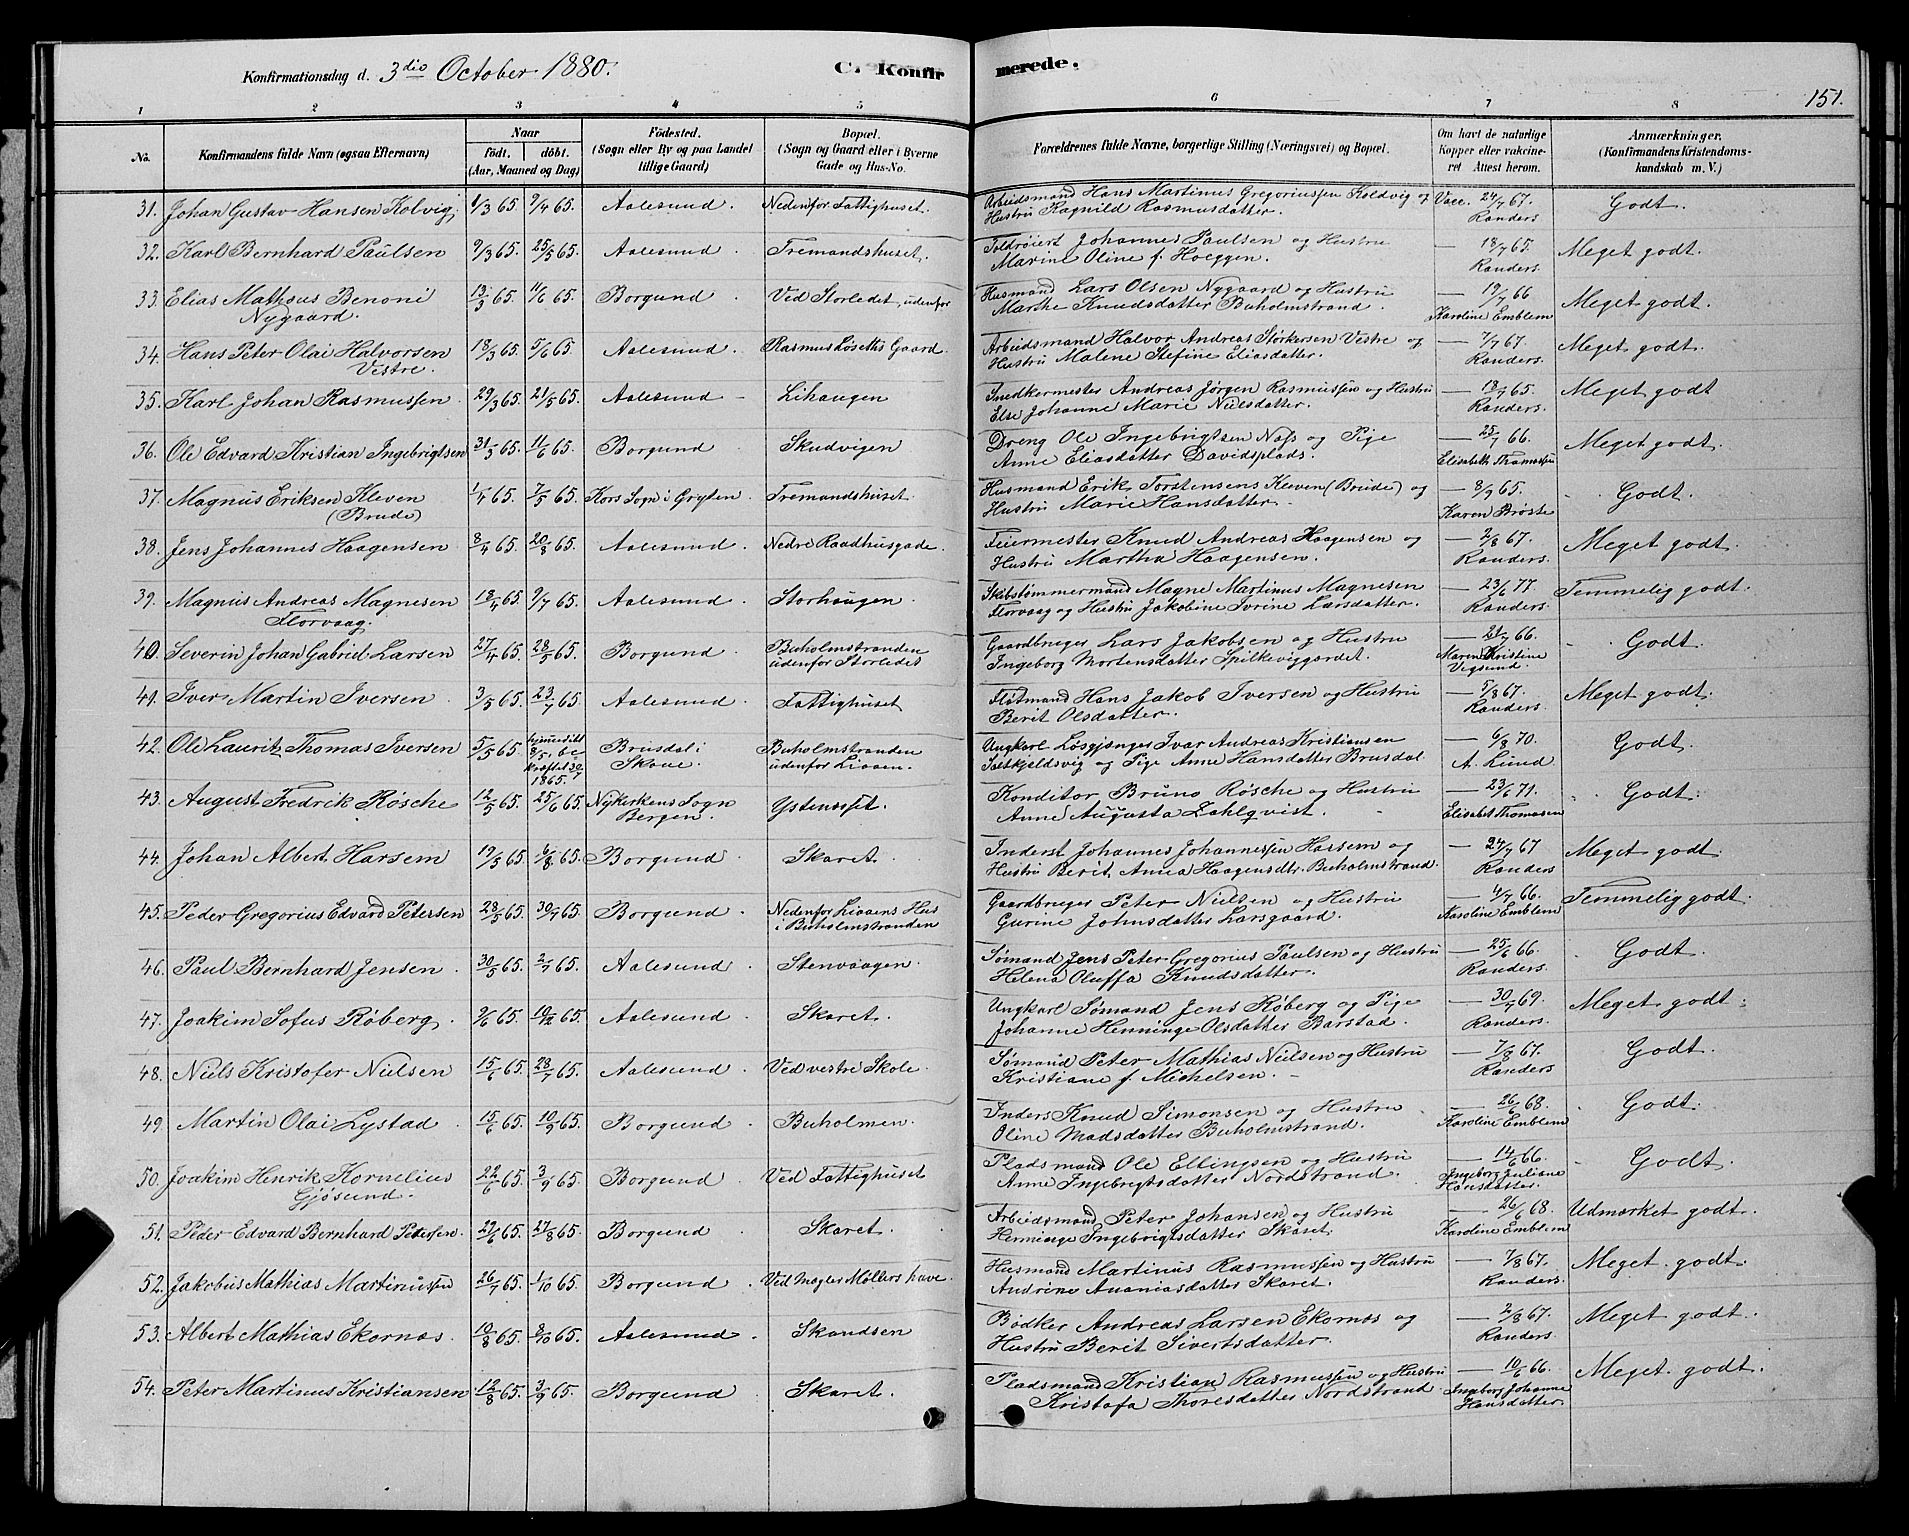 Konfirmationsdag d. 3dio October 1880.
C. Konfirmerede.
151.
1 2 3 4 5 6 7 8
No.
Konfirmandens fulde Navn (ogsaa Efternavn)
Naar
födt. döbt.
(Aar, Maaned og Dag)
Födested.
(Sogn eller By og paa Landet
tillige Gaard)
Bopæl.
(Sogn og Gaard eller i Byerne
Gade og Hus-No.
Forældrenes fulde Navne, borgerlige Stilling (Næringsvei) og Bopæl.
Om havt de naturlige
Kopper eller vakcine-
ret Attest herom.
Anmærkninger.
(Konfirmandens Kristendoms-
kundskab m. V.)
31. Johan Gustav Hansen Kolvig 1/3 65. 9/4 65. Aalesund. Nedenfor Fattighuset. Arbeidsmand Hans Martinus Gregoriussen Koldvig og Vacc. 24/7 67. Godt.
Hustru Ragnild Rasmusdatter. Randers.
32. Karl Bernhard Paulsen 9/3 65. 25/5 65. Aalesund. Tremandshuset. Toldrøiert Johannes Paulsen og Hustru — 18/7 65. Meget godt.
Marine Oline f. Hoeggen. Randers.
33. Elias Matheus Benoni 13/3 65. 11/6 65. Borgund. Ved Storledet, udenfor Husmand Lars Olsen Nygaard og Hustru — 19/7 66 Meget godt.
Nygaard. Marthe Knudsdatter Buholmstrand. Karoline Emblem
34. Hans Peter Olai Halvorsen 18/3 65. 5/6 65. Aalesund. Rasmus Løseths Gaard. Arbeidsmand Halvor Andreas Størkersen Vestre og — 7/7 67. Meget godt.
Vestre. Hustru Malene Stefine Eliasdatter. Randers.
35. Karl Johan Rasmussen. 29/3 65. 21/5 65. Aalesund Lihaugen Snedkermester Andreas Jørgen Rasmussen og Hustru — 18/7 65. Meget godt
Else Johanne Marie Nielsdatter. Randers.
36. Ole Edvard Kristian Ingebrigtsen 31/3 65. 11/6 65. Borgund Skudvigen Dreng Ole Ingebrigtsen Næss og Pige — 25/7 66. Meget godt.
Anne Eliasdatter Davidsplads. Elisabeth Thomassen
37. Magnus Eriksen Kleven 1/4 65. 7/5 65. Kors Sogn i Grytten. Tremandshuset. Husmand Erik Torstensens Kleven (Brude) og — 8/9 65. Godt.
(Brude) Hustru Marie Hansdatter. Karen Brøste
38. Jens Johannes Haagensen 8/4 65. 20/8 65. Aalesund. Nedre Raadhusgade. Feiermester Knud Andreas Haagensen og — 2/8 67. Meget godt.
Hustru Martha Haagensen. Randers.
39. Magnus Andreas Magnesen 18/4 65. 9/7 65. Aalesund. Storhaugen. Skibstømmermand Magne Martinus Magnesen — 23/6 77 Temmelig godt.
Florvaag. Florvaag og Hustru Jakobine Ivrine Larsdatter. Randers.
40. Severin Johan Gabriel Larsen 27/4 65. 28/5 65. Borgund. Buholmstranden Gaardbruger Lars Jakobsen og Hustru — 21/7 66. Godt.
udenfor Storledet Ingeborg Mortensdatter Spilkeviggærdet. Maren Kristine
Vegsund.
41. Iver Martin Iversen 3/5 65. 23/7 65. Aalesund. Fattighuset Flotmand Hans Jakob Iversen og Hustru — 5/8 67. Meget godt.
Berit Olsdatter. Randers.
42. Ole Laurits Thomas Iversen 5/5 65. hjemmedøbt 8/5, be- Brusdal i Buholmstranden Ungkarl Løsgjænger Ivar Andreas Kristiansen — 6/8 70. Godt.
kræftet 30/7 1865. Skoue. udenfor Liaaen. Sæskjeldsvig og Pige Anne Hansdatter Brusdal A. Lund
43. August Fredrik Røsche 12/5 65. 25/6 65. Nykirkens Sogn Ystenæset. Konditor Bruno Røsche og Hustru — 23/6 71. Godt.
Bergen. Anne Augusta Zahlqvist. Elisabet Thomasen
44. Johan Albert Harsem 19/5 65. 6/8 65. Borgund. Skaret. Inderst Johannes Johannessen Harsem og — 24/7 67 Meget godt.
Hustru Berit Anna Haagensdtr. Buholmstrand. Randers
45. Peder Gregorius Edvard Petersen 28/5 65. 30/7 65. Borgund. Nedenfor Liaaens Hus Gaardbruger Peter Nielsen og Hustru — 4/7 66. Temmelig godt.
i Buholmstranden Gurine Johnsdatter Larsgaard. Karoline Emblem
46. Paul Bernhard Jensen. 30/5 65. 2/7 65. Aalesund. Stenvaagen. Sømand Jens Peter Gregorius Paulsen og Hustru — 25/6 66. Godt.
Helena Oluffa Knudsdatter. Randers.
47. Joakim Sofus Røberg. 9/6 65. 10/12 65. Aalesund. Skaret. Ungkarl Sømand Jens Røberg og Pige — 30/7 69. Meget godt.
Johanne Henninge Olsdatter Barstad. Randers.
48. Niels Kristofer Nielsen 15/6 65. 28/7 65. Aalesund. Ved vestre Skole. Sømand Peter Mathias Nielsen og Hustru — 7/8 67. Godt.
Kristiane f. Michelsen. Randers
49. Martin Olai Lystad 15/6 65. 10/9 65. Borgund. Buholmen. Inders Knud Simonsen og Hustru — 26/6 68. Godt.
Oline Madsdatter Buholmstrand. Karoline Emblem
50. Joakim Henrik Kornelius 22/6 65. 3/9 65. Borgund. Ved Fattighuset Pladsmand Ole Ellingsen og Hustru — 14/6 66. Godt.
Gjøsund. Anne Ingebrigtsdatter Nordstrand. Ingeborg Juliane
Hansdatter.
51. Peder Edvard Bernhard Petersen. 29/6 65. 27/8 65. Borgund Skaret. Arbeidsmand Peter Johansen og Hustru — 26/6 68. Udmærket godt.
Henninge Ingebrigtsdatter Skaret. Karoline Emblem
52. Jakobus Mathias Martinussen 26/7 65. 1/10 65. Borgund. Ved Magler Møllers have. Husmand Martinus Rasmussen og Hustru — 7/8 67. Meget godt.
Andrine Ananiasdatter Skaret. Randers.
53. Albert Mathias Ekornæs. 10/8 65. 8/10 65. Aalesund. Skandsen Bødker Andreas Larsen Ekornæs og — 2/8 67. Meget godt.
Hustru Berit Sivertsdatter. Randers.
54. Peter Martinus Kristiansen 12/8 65. 3/9 65. Borgund. Skaret. Pladsmand Kristian Rasmussen og Hustru — 10/6 66. Meget godt.
Kristofa Thoresdatter Nordstrand Ingeborg Johanne
Hansdatter.